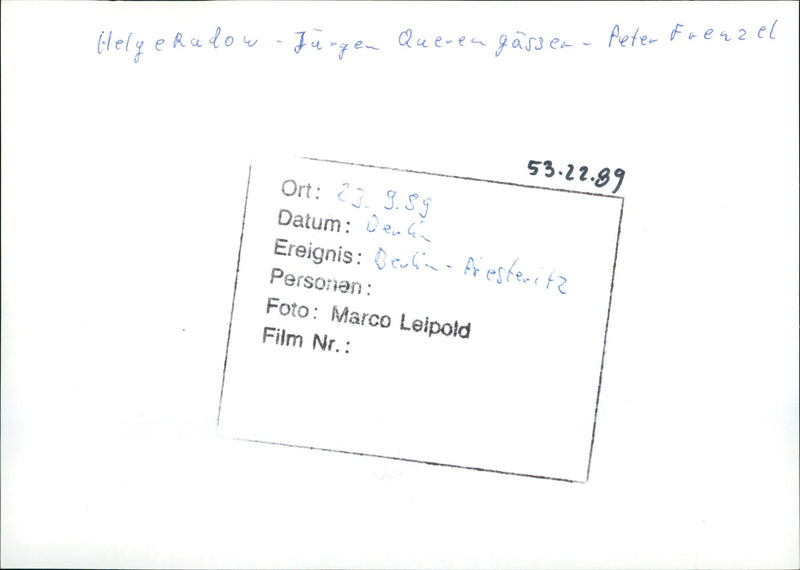 Helge Radow - Jürgen Querengässer - Peter Frenzel
53.22.89
Ort: 23. 9.89
Datum: Berlin
Ereignis: Berlin - Piesteritz
Personen:
Foto: Marco Leipold
Film Nr.: